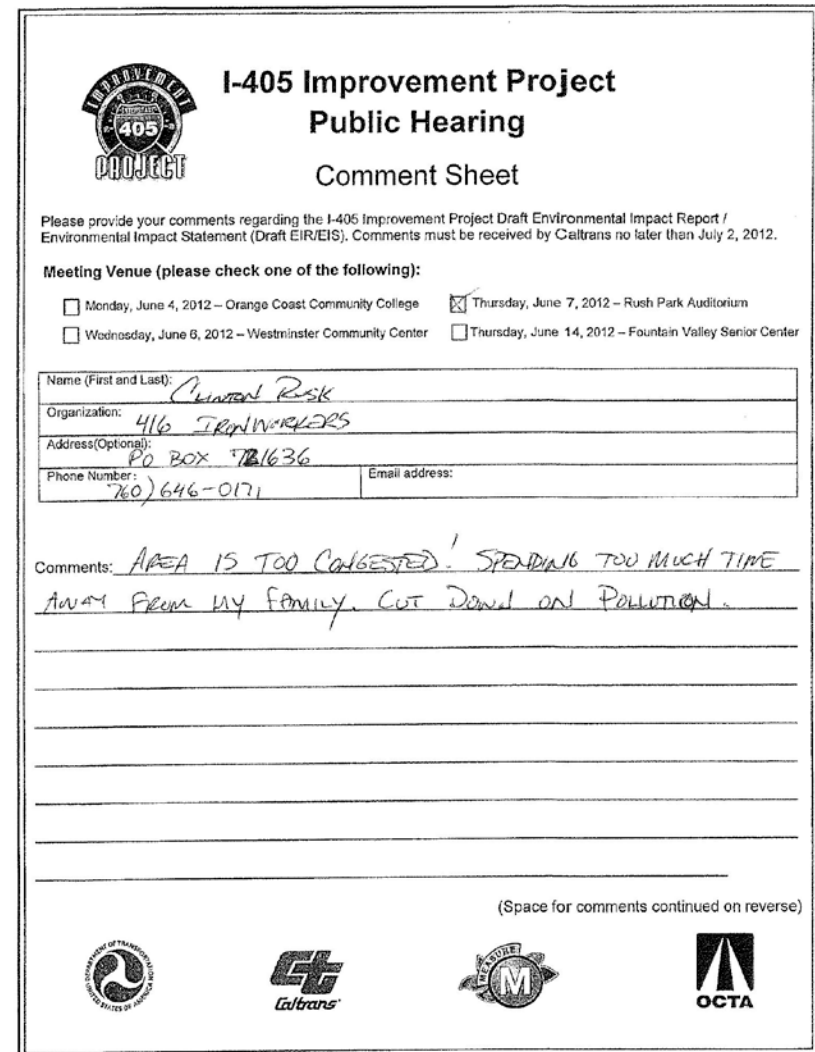 IMPROVEMENT
405
PROJECT
I-405 Improvement Project
Public Hearing
Comment Sheet
Please provide your comments regarding the I-405 Improvement Project Draft Environmental Impact Report /
Environmental Impact Statement (Draft EIR/EIS). Comments must be received by Caltrans no later than July 2, 2012.
Meeting Venue (please check one of the following):
Monday, June 4, 2012 – Orange Coast Community College
Thursday, June 7, 2012 – Rush Park Auditorium
Wednesday, June 6, 2012 – Westminster Community Center
Thursday, June 14, 2012 – Fountain Valley Senior Center
Name (First and Last): CLINTON RUSK
Organization: 416 IRONWORKERS
Address(Optional): PO BOX 721636
Phone Number: 760) 646-0171
Email address:
Comments: AREA IS TOO CONGESTED! SPENDING TOO MUCH TIME
AWAY FROM MY FAMILY. CUT DOWN ON POLLUTION.
(Space for comments continued on reverse)
DEPARTMENT OF TRANSPORTATION
UNITED STATES OF AMERICA
Caltrans
MEASURE
M
OCTA